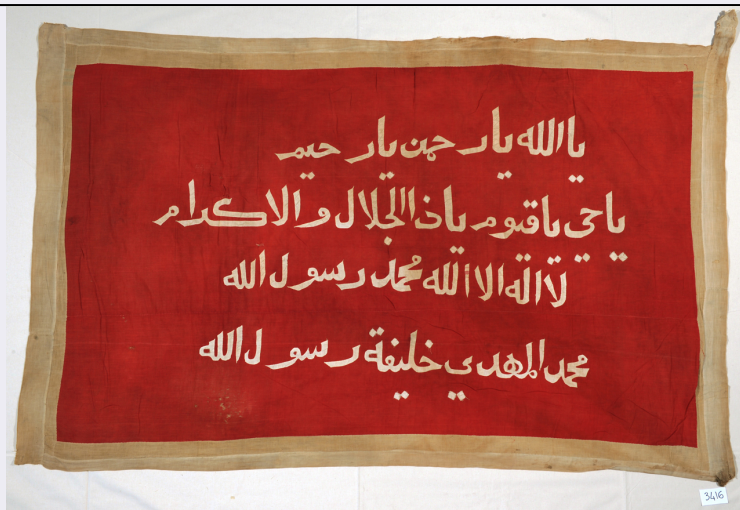 يا الله يا رحمن يا رحيم
يا حي يا قيوم يا ذا الجلال و الاكرام
لا اله الا الله محمد رسول الله
محمد المهدي خليفة رسول الله
3416